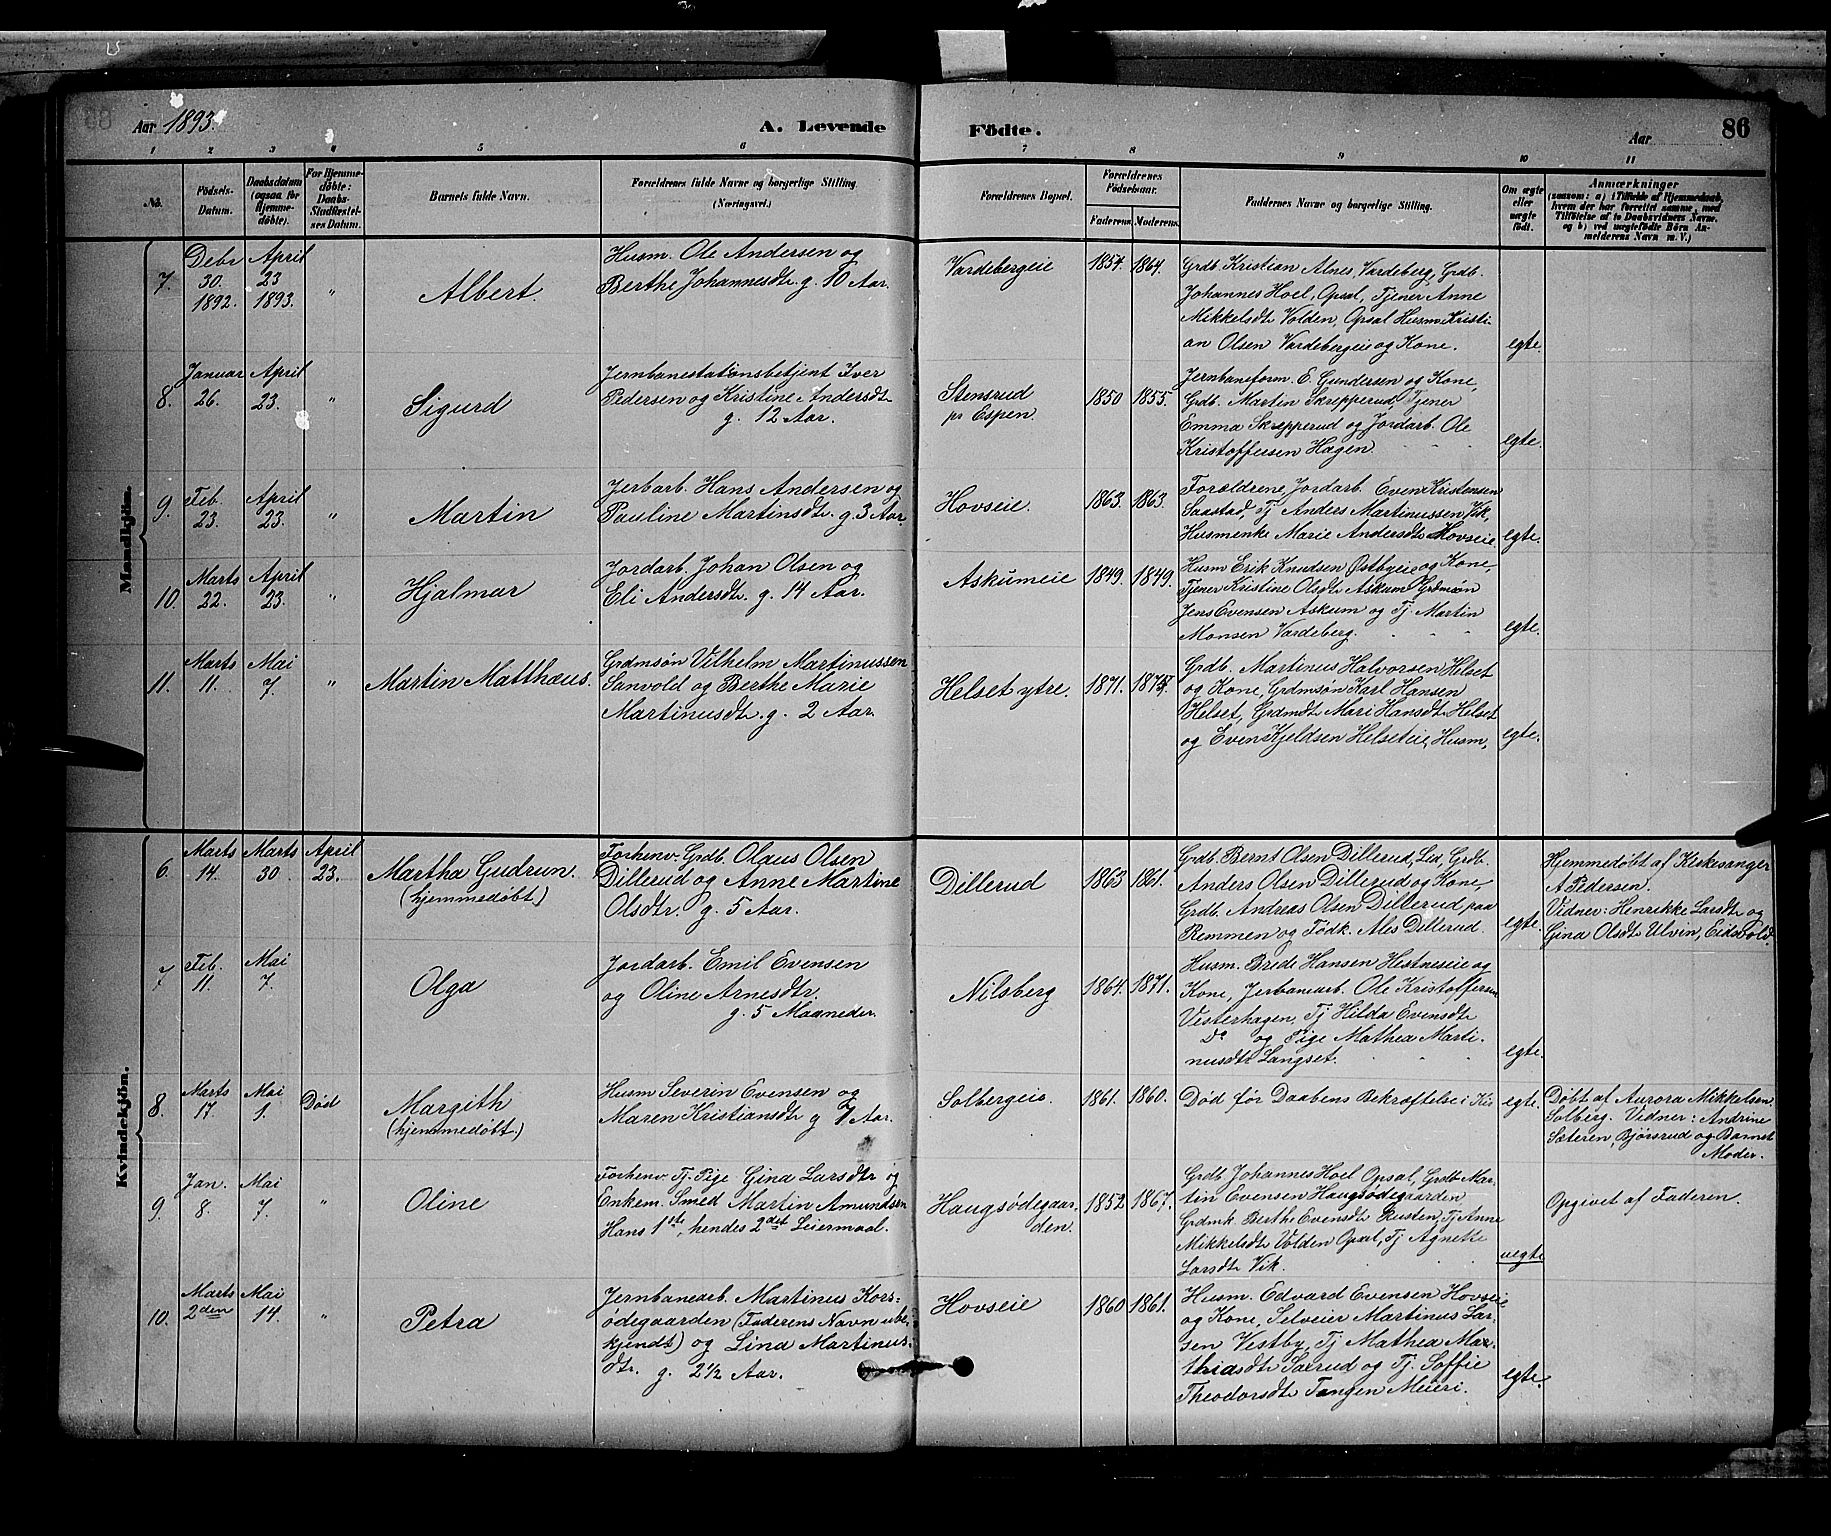 Aar 1893.
A. Levende Födte.
Aar
86
1 2 3 4 5 6 7 8 9 10 11
No.
Födsels-Datum.
Daabsdatum (ogsaa for Hjemmedöbte).
For Hjemmedöbte: Daabs-Stadfæstelses Datum.
Barnets fulde Navn.
Forældrenes fulde Navne og borgerlige Stilling. (Næringsvei.)
Forældrenes Bopæl.
Forældrenes Födselsaar.
Faderens. Moderens.
Faddernes Navne og borgerlige Stilling.
Om ægte eller uægte födt.
Anmærkninger
(saasom: a) i Tilfælde af Hjemmedaab, hvem der har forrettet samme, med Tilföielse af to Daabsvidners Navne. og b) ved uægtefödte Börn Anmelderens Navn m. V.)
Mandkjön.
7.
Debr 30. 1892.
April 23 1893.
"
Albert.
Husm. Ole Andersen og
Berthe Johannesdt. g. 10 Aar.
Vardebergeie
1854. 1864.
Grdb. Kristian Alnes, Vardeberg, Grdb.
Johannes Hoel, Opsal, Tjener Anne
Mikkelsdt Volden, Opsal Husm Kristi-
an Olsen Vardebergeie og Kone.
egte.
8.
Januar 26.
April 23.
"
Sigurd
Jernbanestationsbetjent Iver
Pedersen og Kristine Andersdt
g. 12 Aar.
Stensrud
pr Espen.
1850 1855.
Jernbaneform. E. Gundersen og Kone,
Grdb. Martin Skrepperud, Tjener
Emma Skrepperud og Jordarb. Ole
Kristoffersen Hagen.
egte.
9.
Feb. 23.
April 23.
"
Martin
Jerbarb. Hans Andersen og
Pauline Martinsdt. g. 3 Aar.
Hovseie.
1863. 1863.
Forældrene, Jordarb. Even Kristensen
Saastad, Tj Anders Martinussen Vik,
Husmenke Marie Andersdt Hovseie
egte.
10.
Marts 22.
April 23.
"
Hjalmar
Jordarb. Johan Olsen og
Eli Andersdt. g. 14 Aar.
Askumeie
1849. 1849.
Husm Erik Knudsen Østbyeie og Kone,
Tjener Kristine Olsdt Askum, Grdmsøn
Jens Evensen Askum og Tj. Martin
Monsen Vardeberg.
egte.
11.
Marts 11.
Mai 7.
"
Martin Matthæus.
Grdmsøn Vilhelm Martinussen
Sanvold og Berthe Marie
Martinusdt. g. 2 Aar.
Helset ytre.
1871.
Grdb. Martinus Halvorsen Helset
og Kone, Grdmsøn Karl Hansen
Helset, Grdmdt Mari Hansdt Helset
og Even Kjeldsen Helseteie, Husm,
egte.
Kvindekjön.
6.
Marts 14.
Marts 30.
April 23.
Martha Gudrun.
(hjemmedøbt)
Forhenv. Grdb. Olaus Olsen
Dillerud og Anne Martine
Olsdtr. g. 5 Aar.
Dillerud
1863 1861.
Grdb. Bernt Olsen Dillerud, Lid, Grdb.
Anders Olsen Dillerud og Kone,
Grdb. Andreas Olsen Dillerud paa
Remmen og Födk. Ales Dillerud.
egte.
Hjemmedøbt af Kirkesanger
A Pedersen.
Vidner: Henrikke Larsdt og
Gina Olsdt Ulvin, Eidsvold.
7
Feb. 11.
Mai 7.
Olga
Jordarb. Emil Evensen
og Oline Arnesdtr.
g. 5 Maaneder.
Nilsberg
1864. 1871.
Husm. Brede Hansen Hestneseie og
Kone, Jerbanearb. Ole Kristoffersen
Vesterhagen, Tj Hilda Evensdt
Do og Pige Mathea Marti-
nusdt Langset.
egte.
8.
Marts 17
Mai 1.
Død
Margith
(hjemmedøbt.)
Husm Severin Evensen og
Maren Kristiansdt g 7 Aar.
Solbergeie.
1861. 1860.
Død før Daabens Bekræftelse i Kir
egte.
Døbt af Aurora Mikkelsen
Solberg. Vidner: Andrine
Sæteren, Bjørsrud og Barnets
Moder.
9.
Jan. 8.
Mai 7.
"
Oline
Forhenv. Tj. Pige Gina Larsdtr og
Enkem. Smed Martin Amundsen
Hans 1ste, hendes 2det Leiermaal.
Haugsødegaar-
den.
1852 1867.
Grdb Johannes Hoel Opsal, Grdb Mar-
tin Evensen Haugsødegaarden
Grdmk. Berthe Evensdt Rusten, Tj Anne
Mikkelsdt Volden Opsal, Tj Agnette
Larsdt Vik.
uegte
Opgivet af Faderen
10.
Marts 2den
Mai 14.
"
Petra
Jernbanearb. Martinus Kors-
ødegaarden (Faderens Navn ube-
kjendt) og Lina Martinus-
dtr. g. 2 1/2 Aar.
Hovseie
1860 1861.
Husm. Edvard Evensen Hovseie
og Kone, Selveier Martinus Lar-
sen Vestby, Tj Mathea Mar-
thiasdt Saxrud og Tj. Soffie
Theodorsdt Tangen Meieri.
egte.